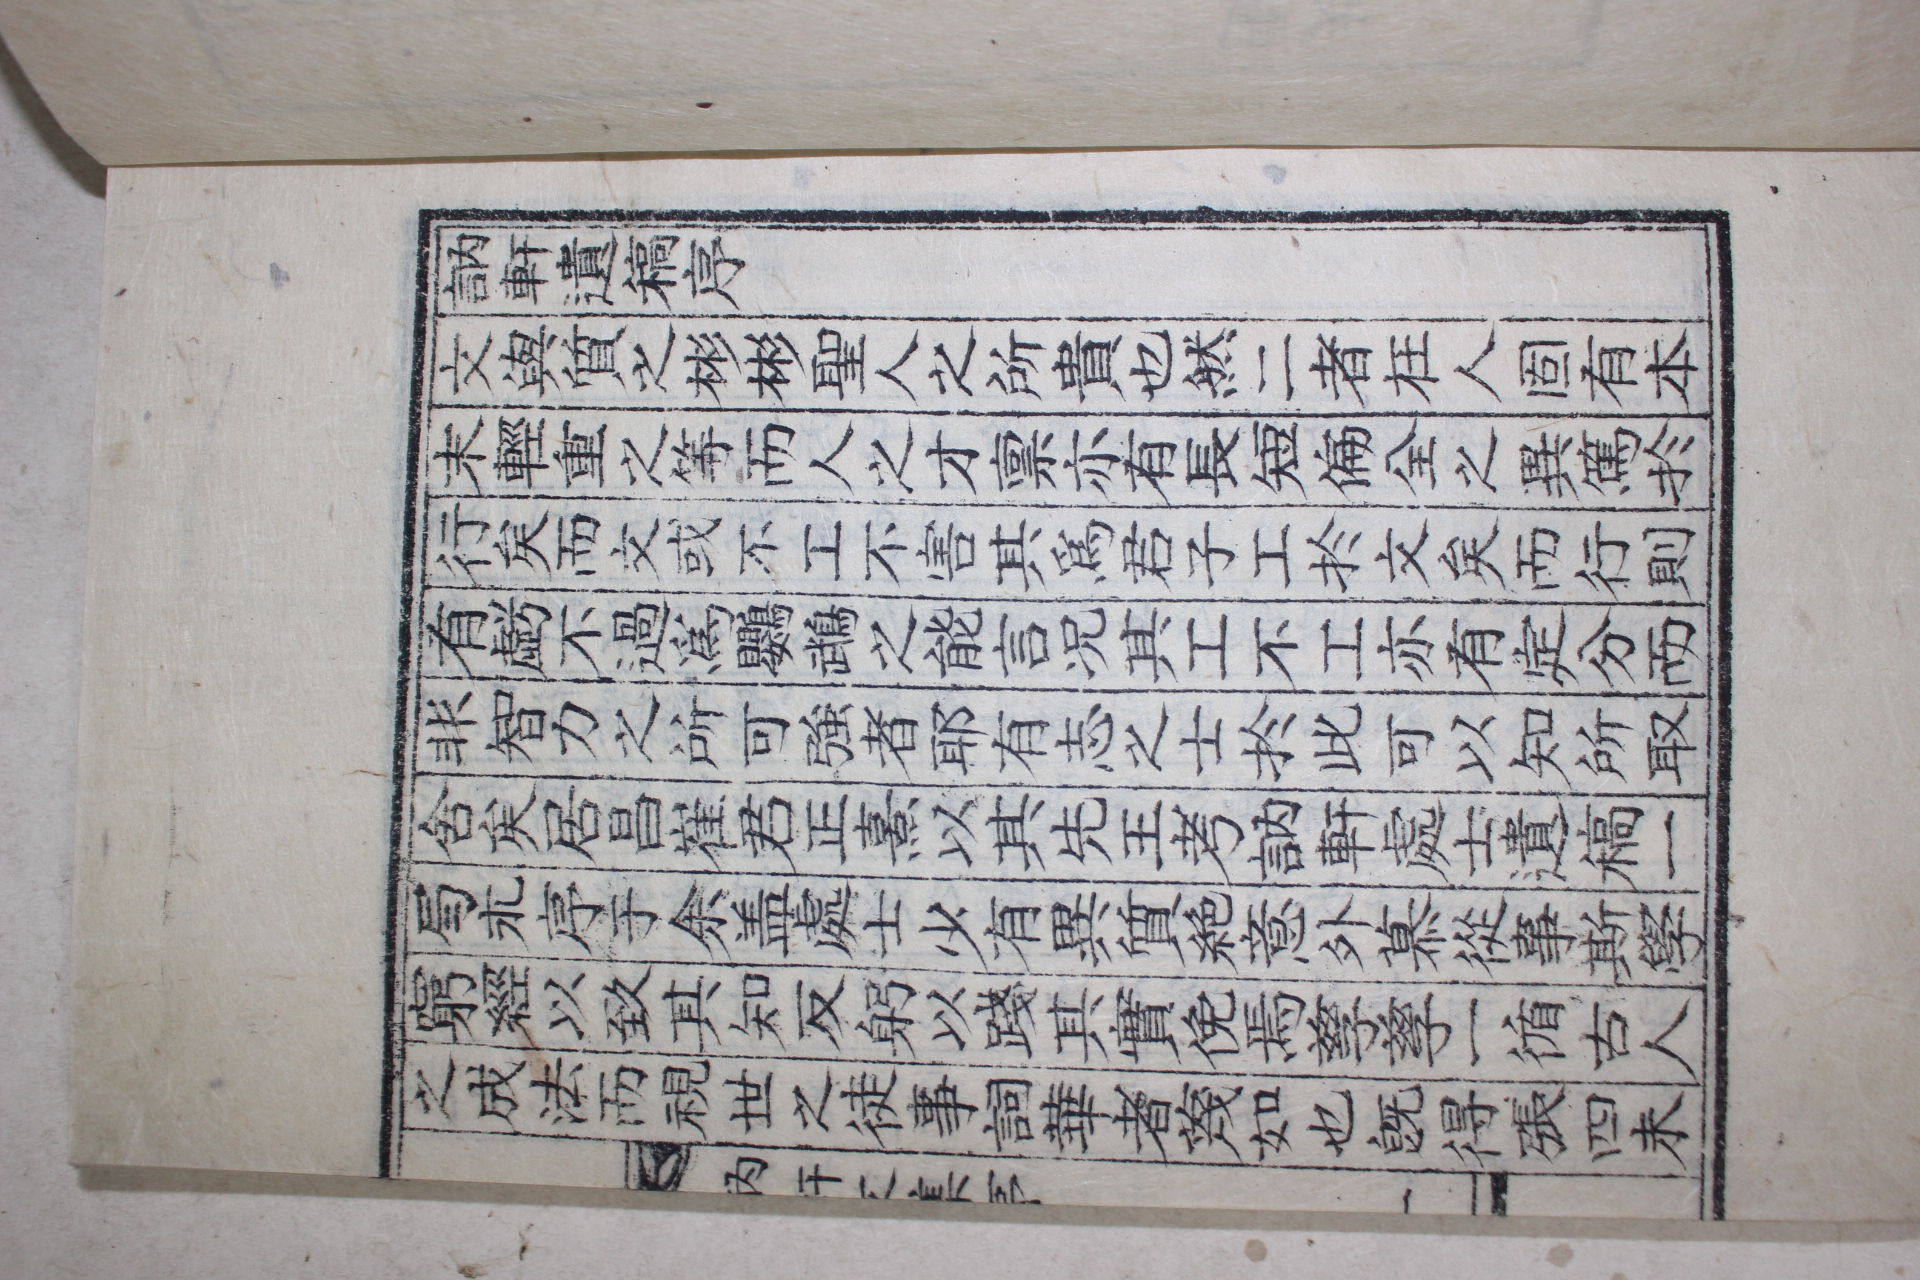 訥軒遺稿序
文與質之彬彬聖人之所貴也然二者在人固有本
末輕重之等而人之才禀亦有長短偏全之異篤於
行矣而文或不工不害其爲君子工於文矣而行則
有虧不過爲鸚鵡之能言况其工不工亦有定分而
非智力之所可強者耶有志之士於此可以知所取
舍矣居昌崔君正熹以其先王考訥軒處士遺稿一
局求序于余盖處士少有異質絶意外慕從事斯學
窮經以致其知反躬以踐其實俛焉孶孶一循古人
之成法而視世之徒事詞華者蔑如也旣得張四未